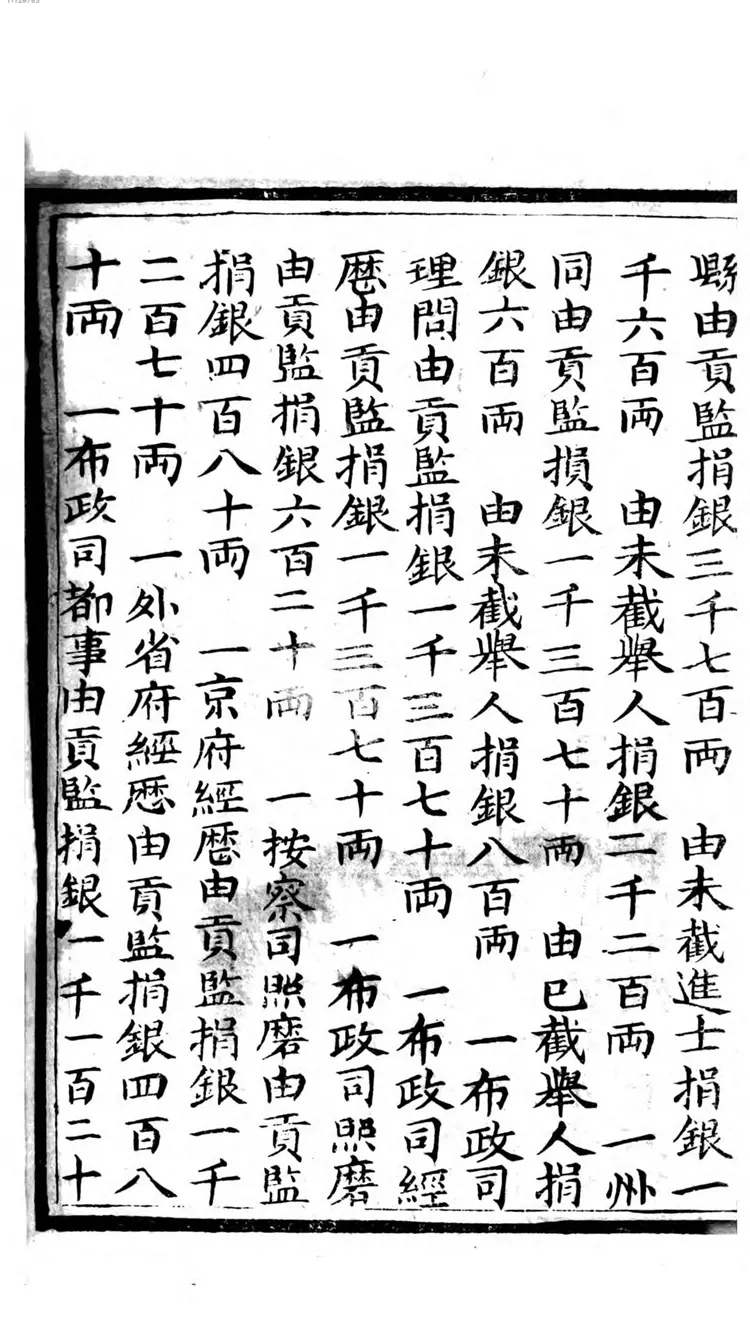 縣由貢監捐銀三千七百両　由未截進士捐銀一
千六百両　由未截舉人捐銀二千二百両　一州
同由貢監損銀一千三百七十両　由已截舉人捐
銀六百両　由未截舉人捐銀八百両　一布政司
理問由貢監捐銀一千三百七十両　一布政司經
歷由貢監捐銀一千三百七十両　一布政司照磨
由貢監捐銀六百二十両　一按察司照磨由貢監
捐銀四百八十両　一京府經歷由貢監捐銀一千
二百七十両　一外省府經歷由貢監捐銀四百八
十両　一布政司都事由貢監捐銀一千一百二十